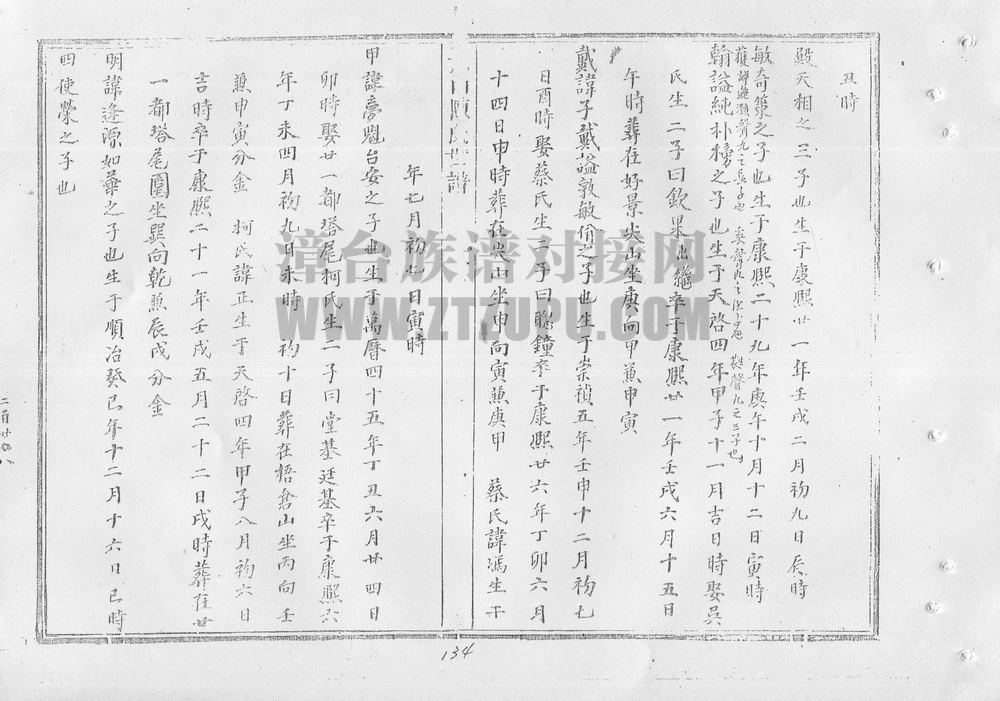 丑時
毅天相之三子也生于康熙廿一年壬戌二月初九日辰時
敏奇策之子也生于康熙二十九年庚午十月十二日寅時
翰謚純朴穆之子也生于天啓四年甲子十一月吉日時娶吳
氏生二子曰欽果出繼卒于康熙廿一年壬戌六月十五日
午時葬在好景尖山坐庚向甲兼申寅
戴諱子戴謚敦敏价之子也生于崇禎五年壬申十二月初七
日酉時娶蔡氏生一子曰聰鐘卒于康熙廿六年丁卯六月
十四日申時葬在尖山坐申向寅兼庚甲 蔡氏諱馮生于
陳氏世譜
年七月初七日寅時
甲諱夢魁台安之子也生于萬曆四十五年丁丑六月廿四日
卯時娶廿一都塔尾柯氏生二子曰堂基廷基卒于康熙六
年丁未四月初九日未時 初十日葬在梧倉山坐丙向壬
兼申寅分金 柯氏諱正生于天啓四年甲子八月初六日
吉時卒于康熙二十一年壬戌五月二十二日戌時葬在廿
一都塔尾園坐巽向乾兼辰戌分金
明諱逢源如華之子也生于順治癸巳年十二月十六日巳時
四使榮之子也
134
漳台族谱对接网
WWW.ZTZUPU.COM